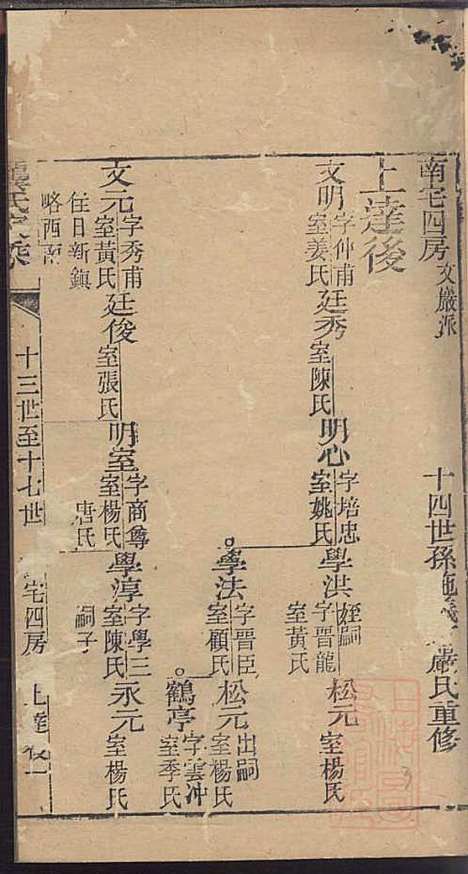 南宅四房文嚴派
十四世孫
嚴氏重修
上達後
文明字仲甫室姜氏
廷秀室陳氏
明心字培忠室姚氏
學洪姪嗣字晋龍室黃氏
松元室楊氏
學法字晋臣室顧氏
松元出嗣室楊氏
鶴亭字雲冲室季氏
文元字秀甫室黃氏住日新鎮略西南
廷俊室張氏
明室字商尊室楊氏唐氏
學淳字學三室陳氏嗣子
永元室楊氏
氏
十三世至十七世
宅四房
上達後一